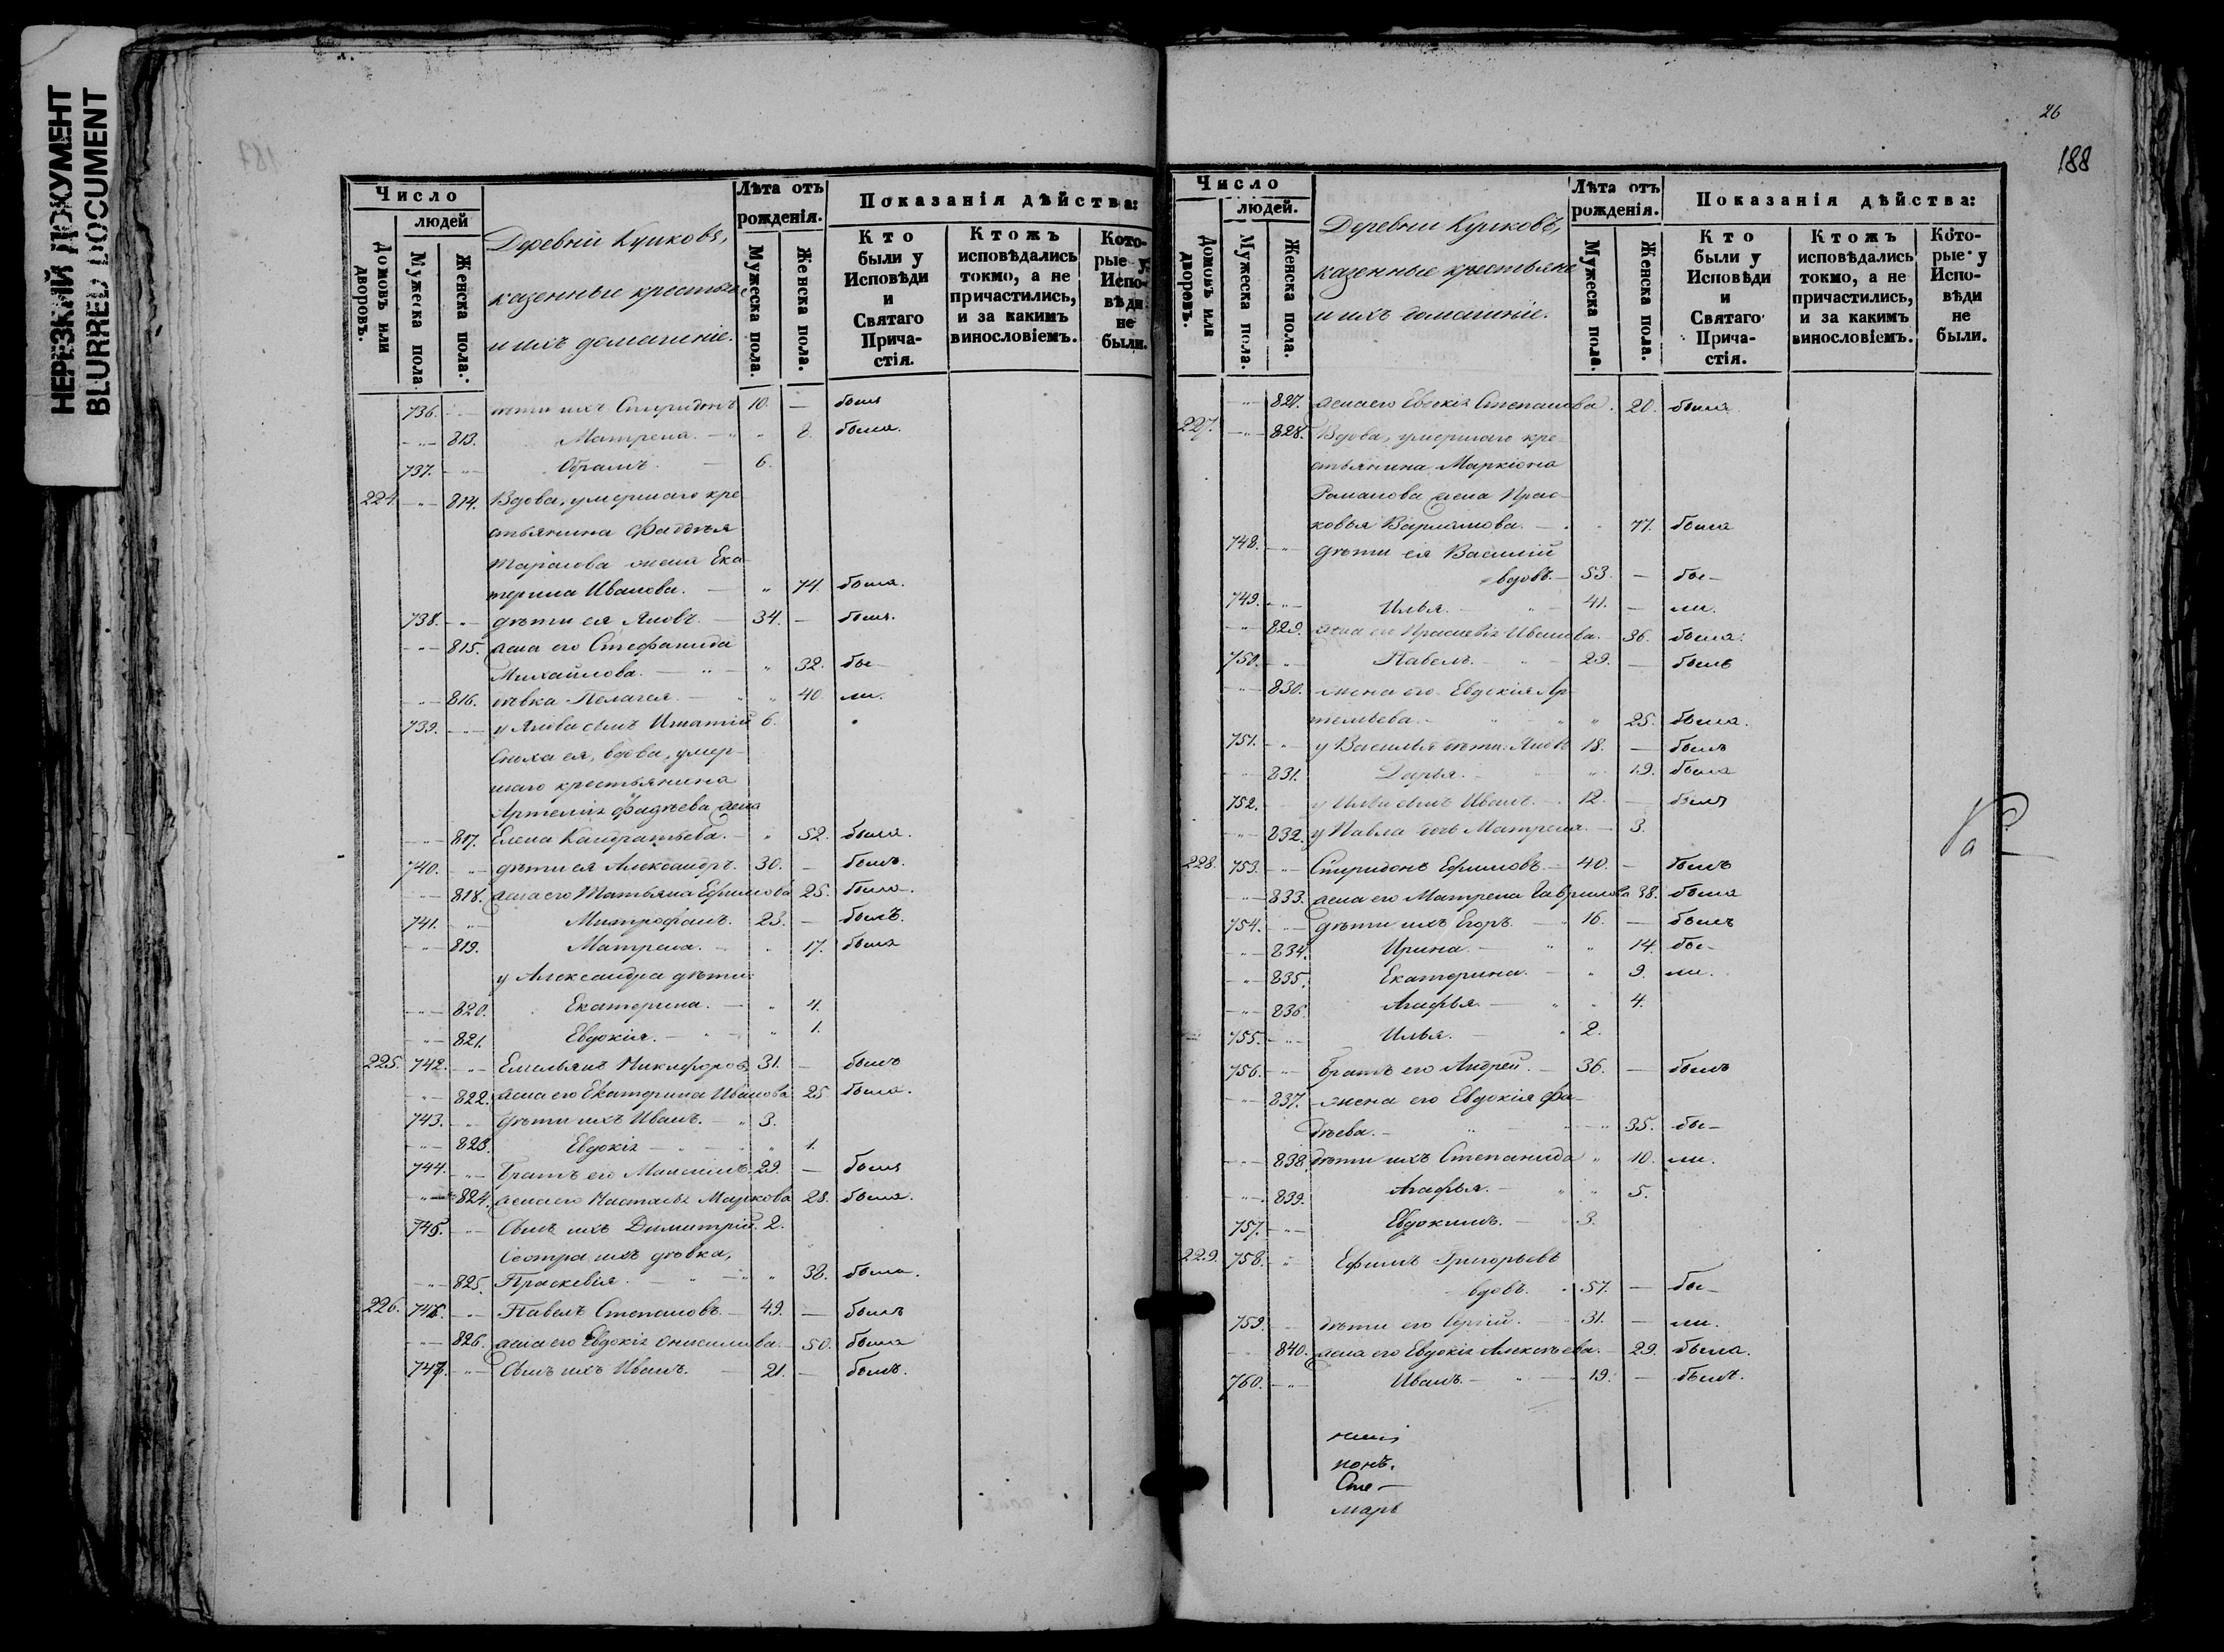 НЕРЕЗКИЙ ДОКУМЕНТ
BLURRED DOCUMENT
Число
людей
Домовъ или дворовъ.
Мужеска пола.
Женска пола.
Деревни Куликовъ,
казенные крестьяне
и ихъ домашніе.
Лѣта отъ рожденія.
Мужеска пола.
Женска пола.
Показанія дѣйства:
Кто были у Исповѣди и Святаго Причастія.
Ктожъ исповѣдались токмо, а не причастились, и за какимъ винословіемъ.
Которые у Исповѣди не были.
736. дѣти ихъ Спиридонъ 10. — былъ
813. Матрена. 8. была.
737. Абрамъ. 6.
224. 814. Вдова, умершаго кре-
стьянина Фаддея
Тарасова жена Ека-
терина Иванова. 74. была.
738. дѣти ея Яковъ. 34. — былъ.
815. жена его Стефанида
Михайлова. 32. бы-
816. дѣвка Пелагея. 40. ли.
739. у Якова сынъ Игнатій 6.
Сноха ея, вдова, умер-
шаго крестьянина
Артемія Фадѣева жена
817. Елена Кандратьева. 52. была.
740. дѣти ея Александръ. 30. — былъ.
818. жена его Татьяна Ефимова 25. была.
741. Митрофанъ. 23. — былъ.
819. Матрена. 17. была
у Александра дѣти:
820. Екатерина. 4.
821. Евдокія. 1.
225. 742. Емельянъ Никифоровъ 31. — былъ
822. жена его Екатерина Иванова 25 была.
743. дѣти ихъ Иванъ. 3.
823. Евдокія 1.
744. Братъ его Максимъ. 29. — былъ
824. жена его Настасья Маркова 28. была.
745. Сынъ ихъ Димитрій. 2.
Сестра ихъ дѣвка,
825. Праскевія. 38. была.
226. 746. Павелъ Степановъ. 49. — былъ
826. жена его Евдокія Онисимова. 50. была
747. Сынъ ихъ Иванъ. 21. — былъ.
26
188
Число
людей.
Домовъ или дворовъ.
Мужеска пола.
Женска пола.
Деревни Куликовъ,
казенные крестьяне
и ихъ домашніе.
Лѣта отъ рожденія.
Мужеска пола.
Женска пола.
Показанія дѣйства:
Кто были у Исповѣди и Святаго Причастія.
Ктожъ исповѣдались токмо, а не причастились, и за какимъ винословіемъ.
Которые у Исповѣди не были.
827. жена его Евдокія Степанова. 20. была
227. 828. Вдова, умершаго кре-
стьянина Маркіона
Романова жена Прас-
ковья Варламова. 77. была
748. дѣти ея Василій
вдовъ. 53. — бы-
749. Илья. 41. — ли.
829. жена его Праскевія Иванова. 36. была.
750. Павелъ. 29. — былъ
830. жена его Евдокія Ар-
темьева. 25. была.
751. у Василья дѣти: Яковъ 18. — былъ
831. Дарья. 19. была
752. у Ильи сынъ Иванъ. 12. — былъ
832. у Павла дочь Матрена. 3.
228. 753. Спиридонъ Ефимовъ. 40. — былъ
833. жена его Матрена Гаврилова 38. была
754. дѣти ихъ Егоръ. 16. — былъ
834. Ирина. 14. бы-
835. Екатерина. 9. ли.
836. Агафья. 4.
755. Илья. 2.
756. Братъ его Андрей. 36. — былъ
837. жена его Евдокія Фа-
дѣева. 35. бы-
838. дѣти ихъ Степанида 10. ли.
839. Агафья. 5.
757. Евдокимъ. 3.
229. 758. Ефимъ Григорьевъ
вдовъ. 57. — бы-
759. дѣти его Сергій. 31. — ли.
840. жена его Евдокія Алексѣева. 29. была.
760. Иванъ. 19. — былъ.